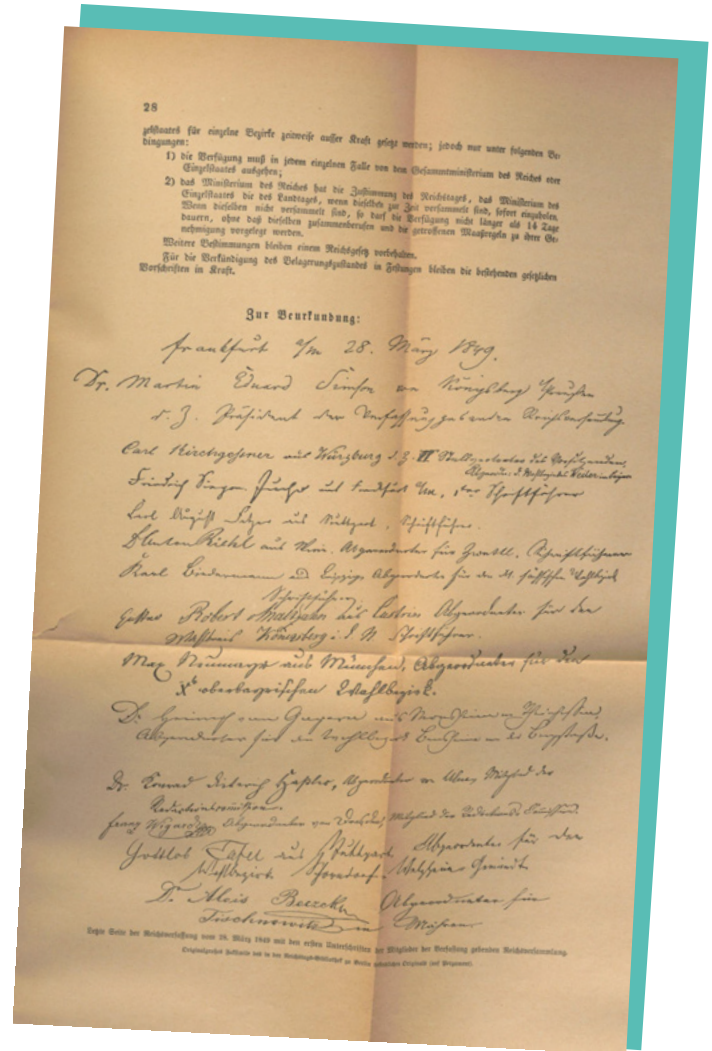 28
zelstaates für einzelne Bezirke zeitweise ausser Kraft gesetzt werden; jedoch nur unter folgenden Be-
dingungen:
1) die Verfügung muß in jedem einzelnen Falle von dem Gesammtministerium des Reiches oder
Einzelstaates ausgehen;
2) das Ministerium des Reiches hat die Zustimmung des Reichstages, das Ministerium des
Einzelstaates die des Landtages, wenn dieselben zur Zeit versammelt sind, sofort einzuholen.
Wenn dieselben nicht versammelt sind, so darf die Verfügung nicht länger als 14 Tage
dauern, ohne daß dieselben zusammenberufen und die getroffenen Maasregeln zu ihrer Ge-
nehmigung vorgelegt werden.
Weitere Bestimmungen bleiben einem Reichsgesetz vorbehalten.
Für die Verkündigung des Belagerungszustandes in Festungen bleiben die bestehenden gesetzlichen
Vorschriften in Kraft.
Zur Beurkundung:
Frankfurt a/m 28. März 1849.
Dr. Martin Eduard Simson von Königsberg Preußen
d. Z. Präsident der Verfassunggebenden Reichsversammlung.
Carl Kirchgessner aus Würzburg d. Z. II Stellvertreter des Vorsitzenden,
Friedrich Siegm. Jucho aus Frankfurt a/m, Schriftführer
Carl August Fetzer aus Stuttgart, Schriftführer.
Anton Riehl aus Wien, Abgeordneter für Zwettl, Schriftführer
Karl Biedermann aus Leipzig, Abgeordneter für den sächsischen Wahlbezirk
Schriftführer.
Gustav Robert Maltzahn aus Cüstrin Abgeordneter für den
Wahlkreis Königsberg i. d. N. Schriftführer.
Max Neumayr aus München, Abgeordneter für den
X oberbayrischen Wahlbezirk.
Dr. Heinrich von Gagern aus Monsheim in Rheinhessen,
Abgeordneter für den Wahlbezirk Bensheim an der Bergstraße.
Dr. Konrad Dieterich Haßler, Abgeordneter von Ulm, Mitglied der
Redactionscommission.
Franz Wigard, Abgeordneter von Dresden, Mitglied der Redactions Commission.
Gottlob Tafel aus Stuttgart Abgeordneter für den
Wahlbezirk Welzheim Gmünd
Dr. Alois Boczek Abgeordneter für
Tischnowitz in Mähren
Letzte Seite der Reichsverfassung vom 28. März 1849 mit den ersten Unterschriften der Mitglieder der Verfassung gebenden Reichsversammlung.